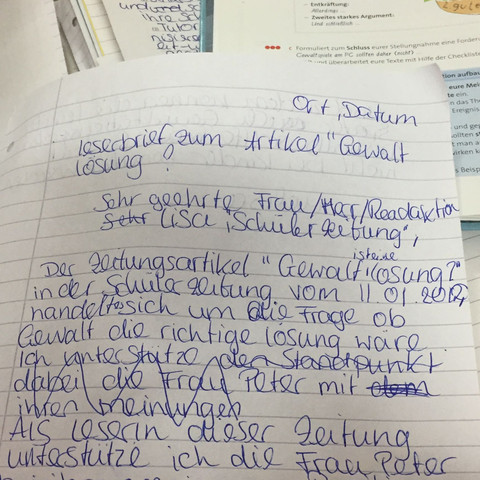 Entkräftung:
Allerdings ...
Zweites starkes Argument:
Und schließlich ...
Formuliert zum Schluss eurer Stellungnahme eine Forder
und überarbeitet eure Texte mit Hilfe der Checkliste
Ort, Datum
Leserbrief zum Artikel "Gewalt
Lösung?
Sehr geehrte Frau/Herr/Readaktion
Sehr Lisa "Schülerzeitung",
Der Zeitungsartikel "Gewalt ist eine lösung?"
in der Schülerzeitung vom 11.01.2012,
handelt es sich um die Frage ob
Gewalt die richtige lösung wäre.
Ich unterstütze den Standpunkt
dabei die Frau Peter mit dem
ihren meinungen
Als Leserin dieser Zeitung
unterstütze ich die Frau Peter